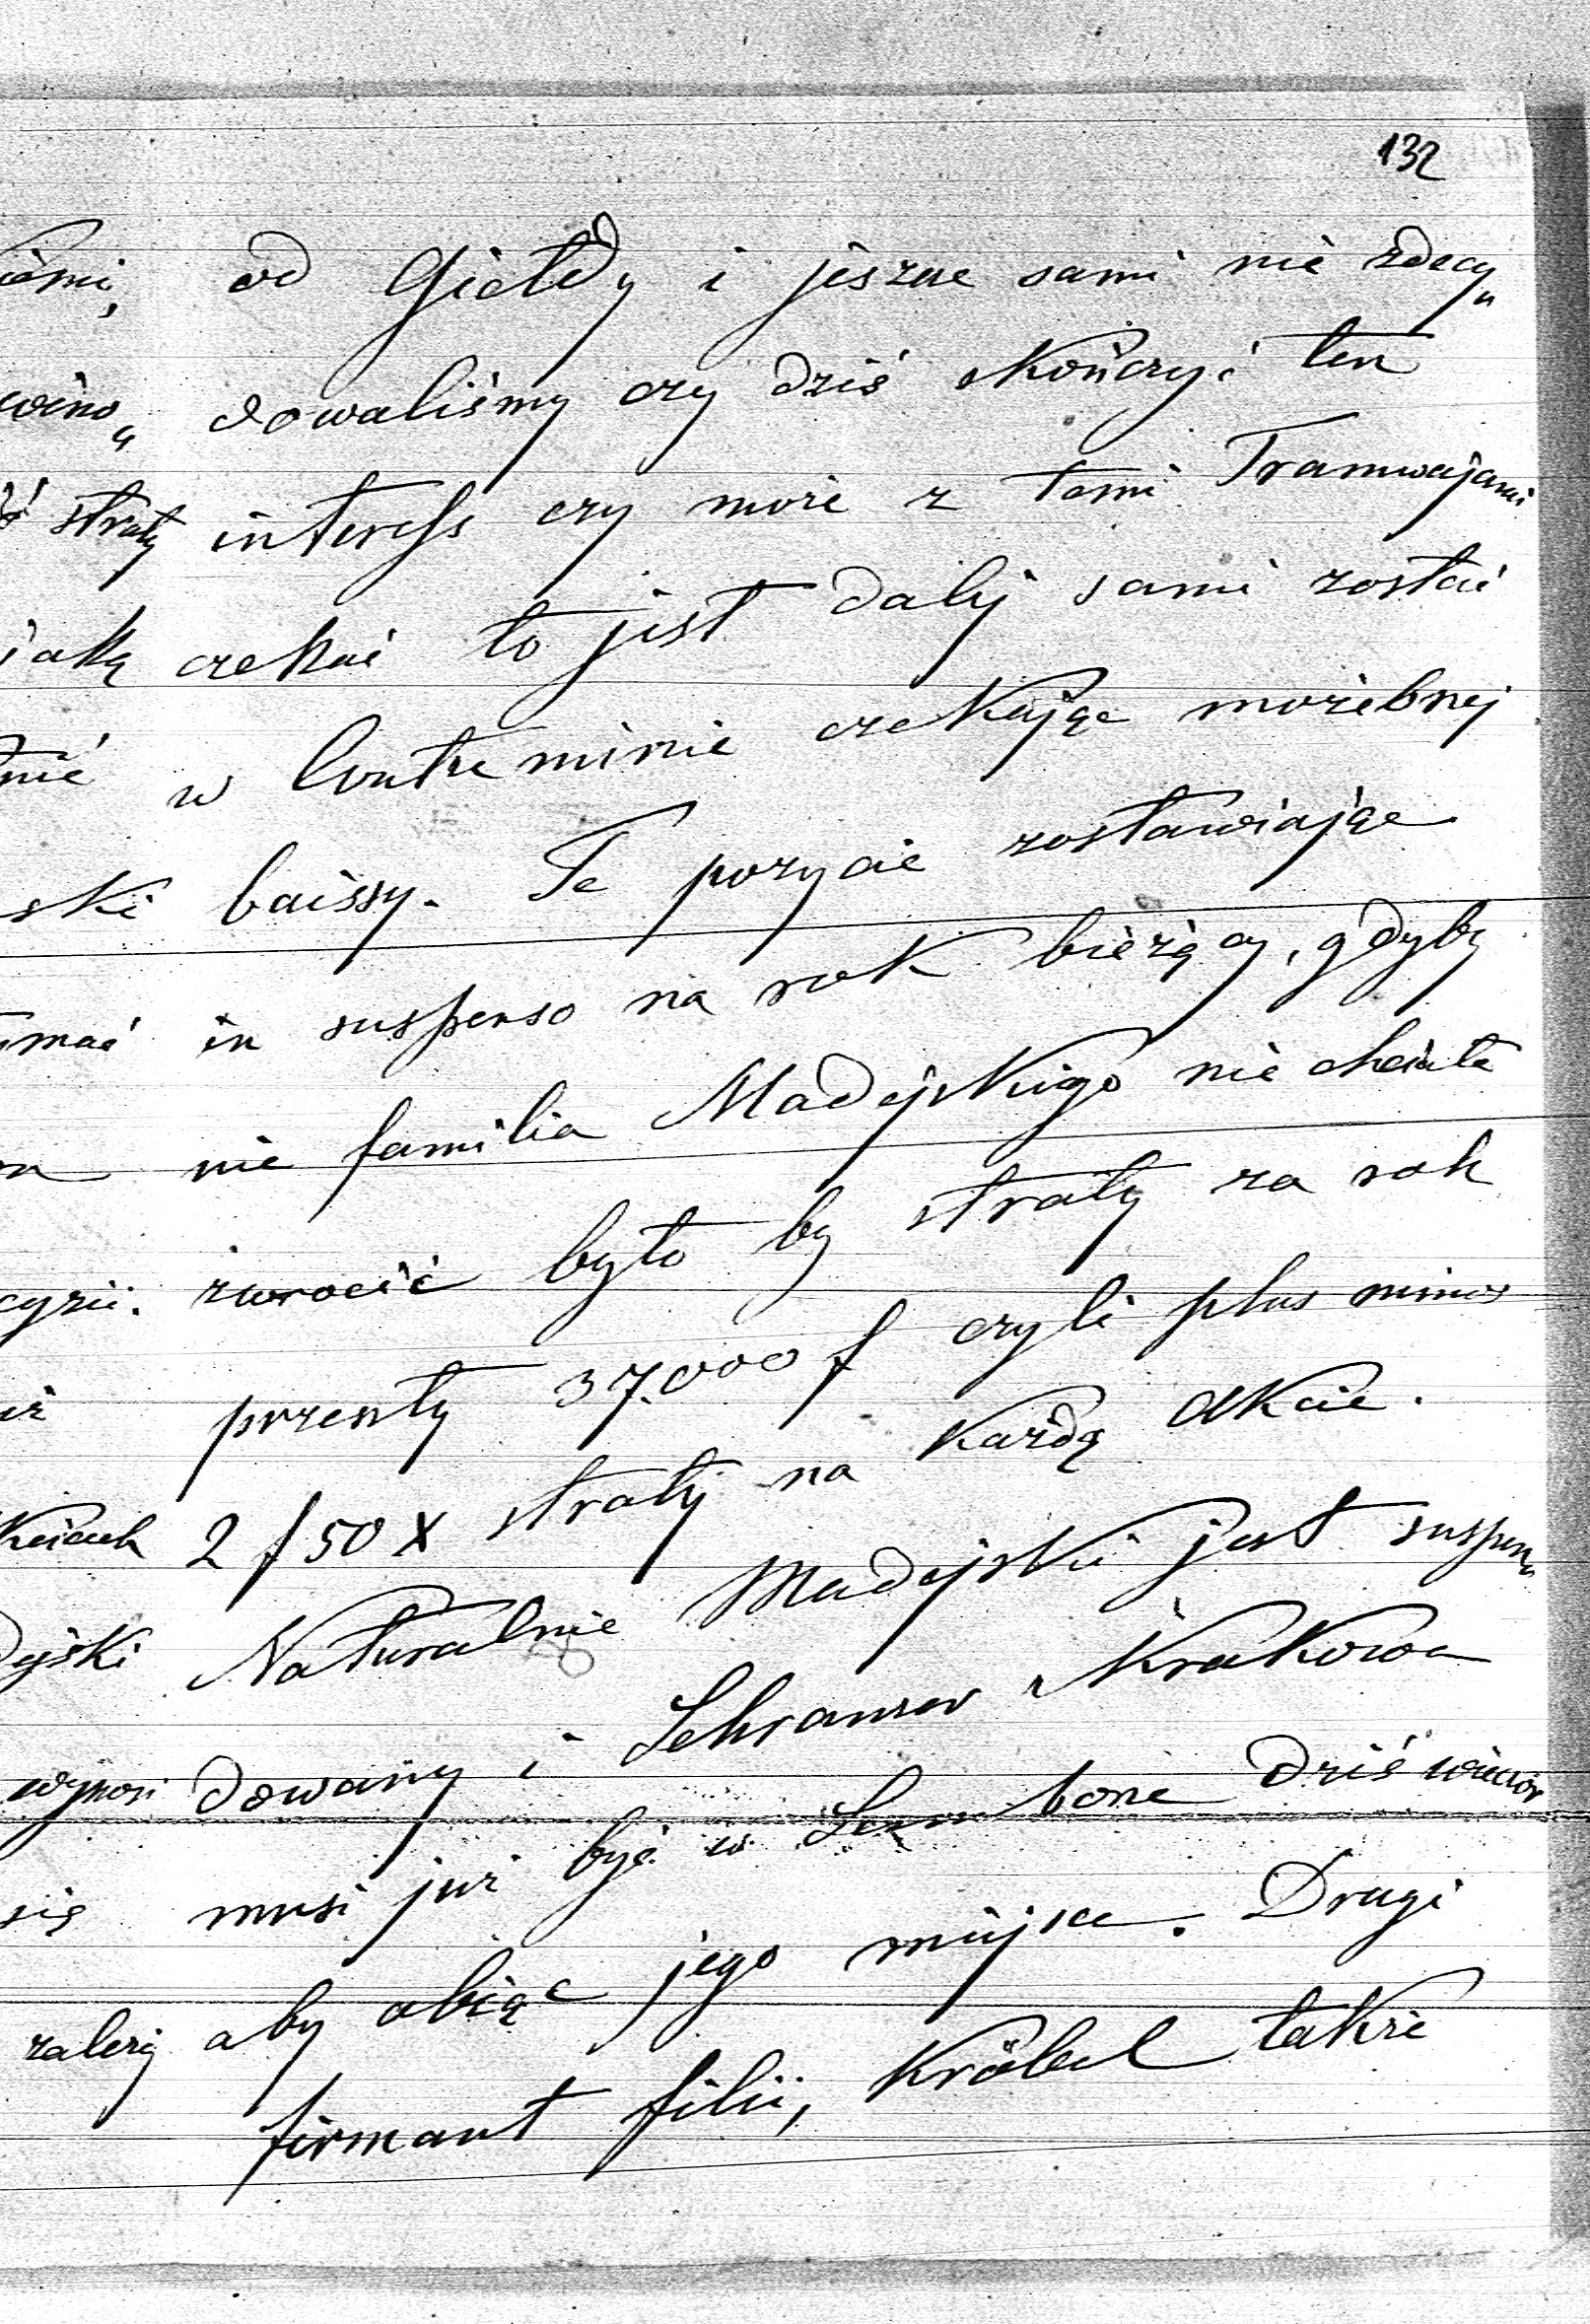 132
od Giełdy i jeszcze sami nie zdecy„
dowaliśmy czy dziś skończyć ten
straty interess czy może z temi Tramwajami
jaką czekać to jest dalej sami zostać
w Contreminie czekając możebnej
ski baissy. Te pozycie zostawiając
in suspenso na rok bieżący, gdyby
nie familia Madejskiego nie chciała
zwrócić było by straty za rok
przeszły 37.000 f czyli plus minus
2 f 50 x straty na każdą akcie.
Naturalnie Madejski jest suspen„
wynosi dowany i Schramer z Krakowa
się musi już być w dziś wieczór
zależy aby objąć jego miejsce. Drugi
firmant filii, Kröbel także